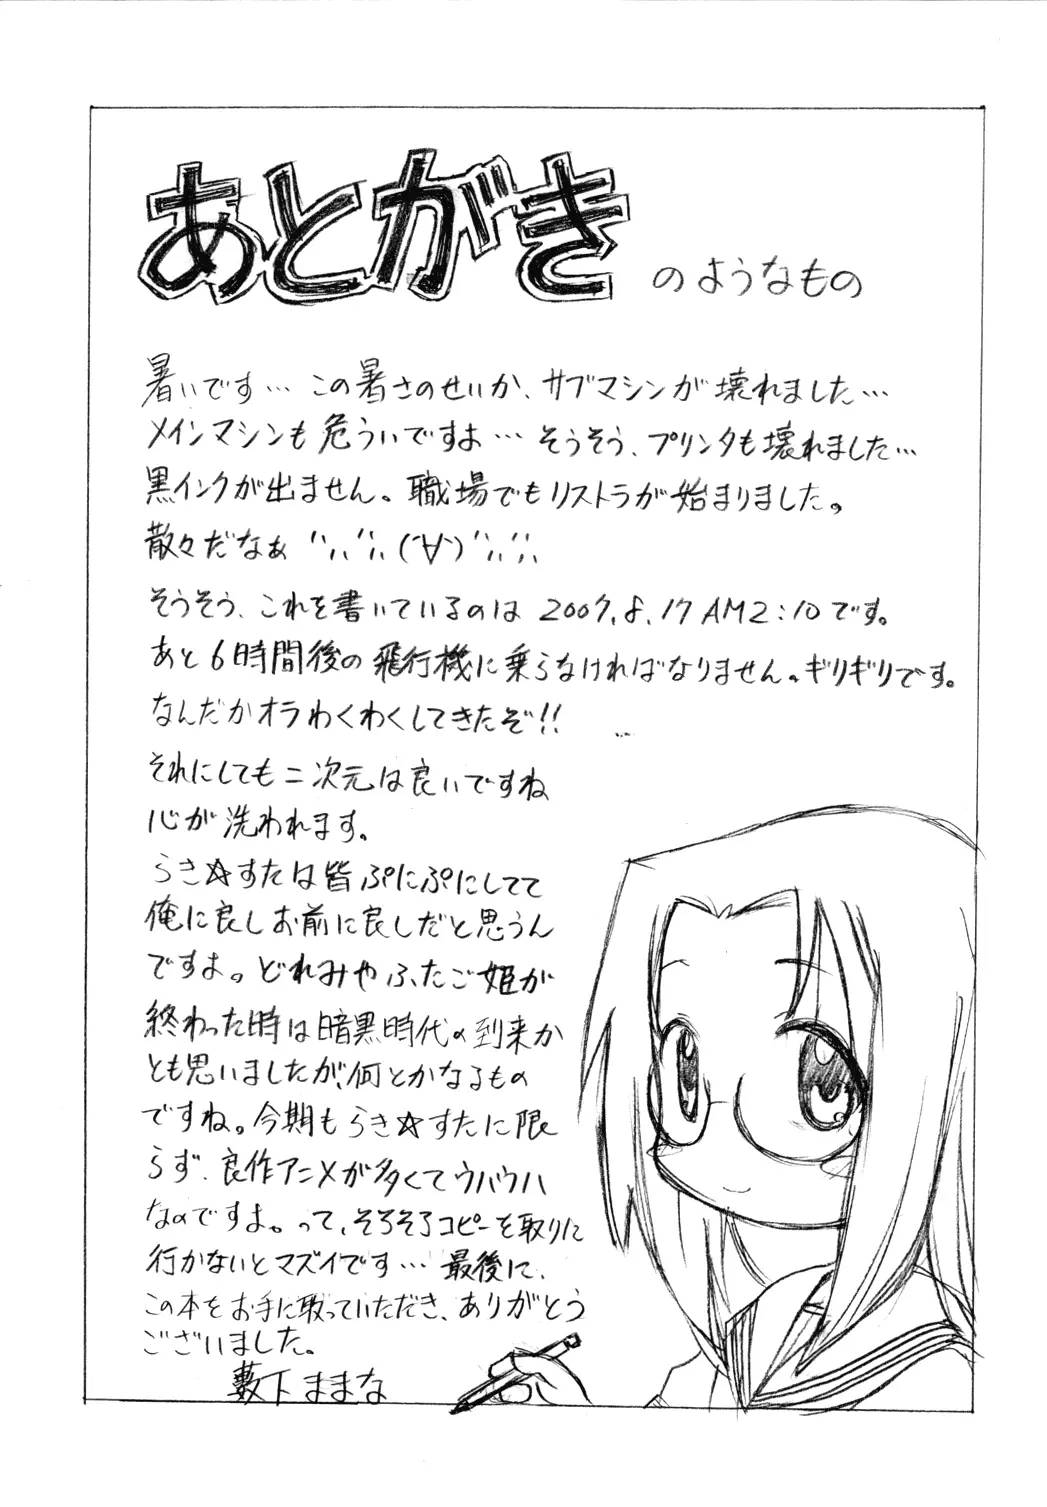 あとがき のようなもの
暑いです… この暑さのせいか、サブマシンが壊れました…
メインマシンも危ういですよ… そうそう、プリンタも壊れました…
黒インクが出ません。職場でもリストラが始まりました。
散々だなぁ ヾ;､ヾ;､(´∀`)ヾ;､ヾ;､
そうそう、これを書いているのは 2007.8.17 AM2:10です。
あと6時間後の飛行機に乗らなければなりません。ギリギリです。
なんだかオラわくわくしてきたぞ!!
それにしても二次元は良いですね
心が洗われます。
らき☆すたは皆ぷにぷにしてて
俺に良しお前に良しだと思うん
ですよ。どれみやふたご姫が
終わった時は暗黒時代の到来か
とも思いましたが、何とかなるもの
ですね。今期もらき☆すたに限
らず、良作アニメが多くてウハウハ
なのですよ。って、そろそろコピーを取りに
行かないとマズイです… 最後に、
この本をお手に取っていただき、ありがとう
ございました。
藪下ままな